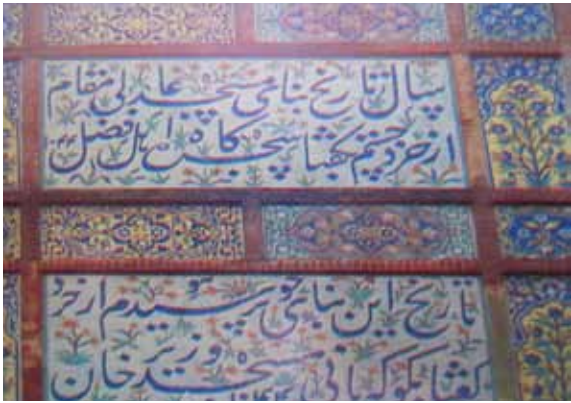 سال تاریخ بنای مسجد عالی مقام
از خرد جستم بگفتا سجده گاه اهل فضل
تاریخ این بنای چو پرسیدم از خرد
گفتا بگو که بانی مسجد وزیر خان